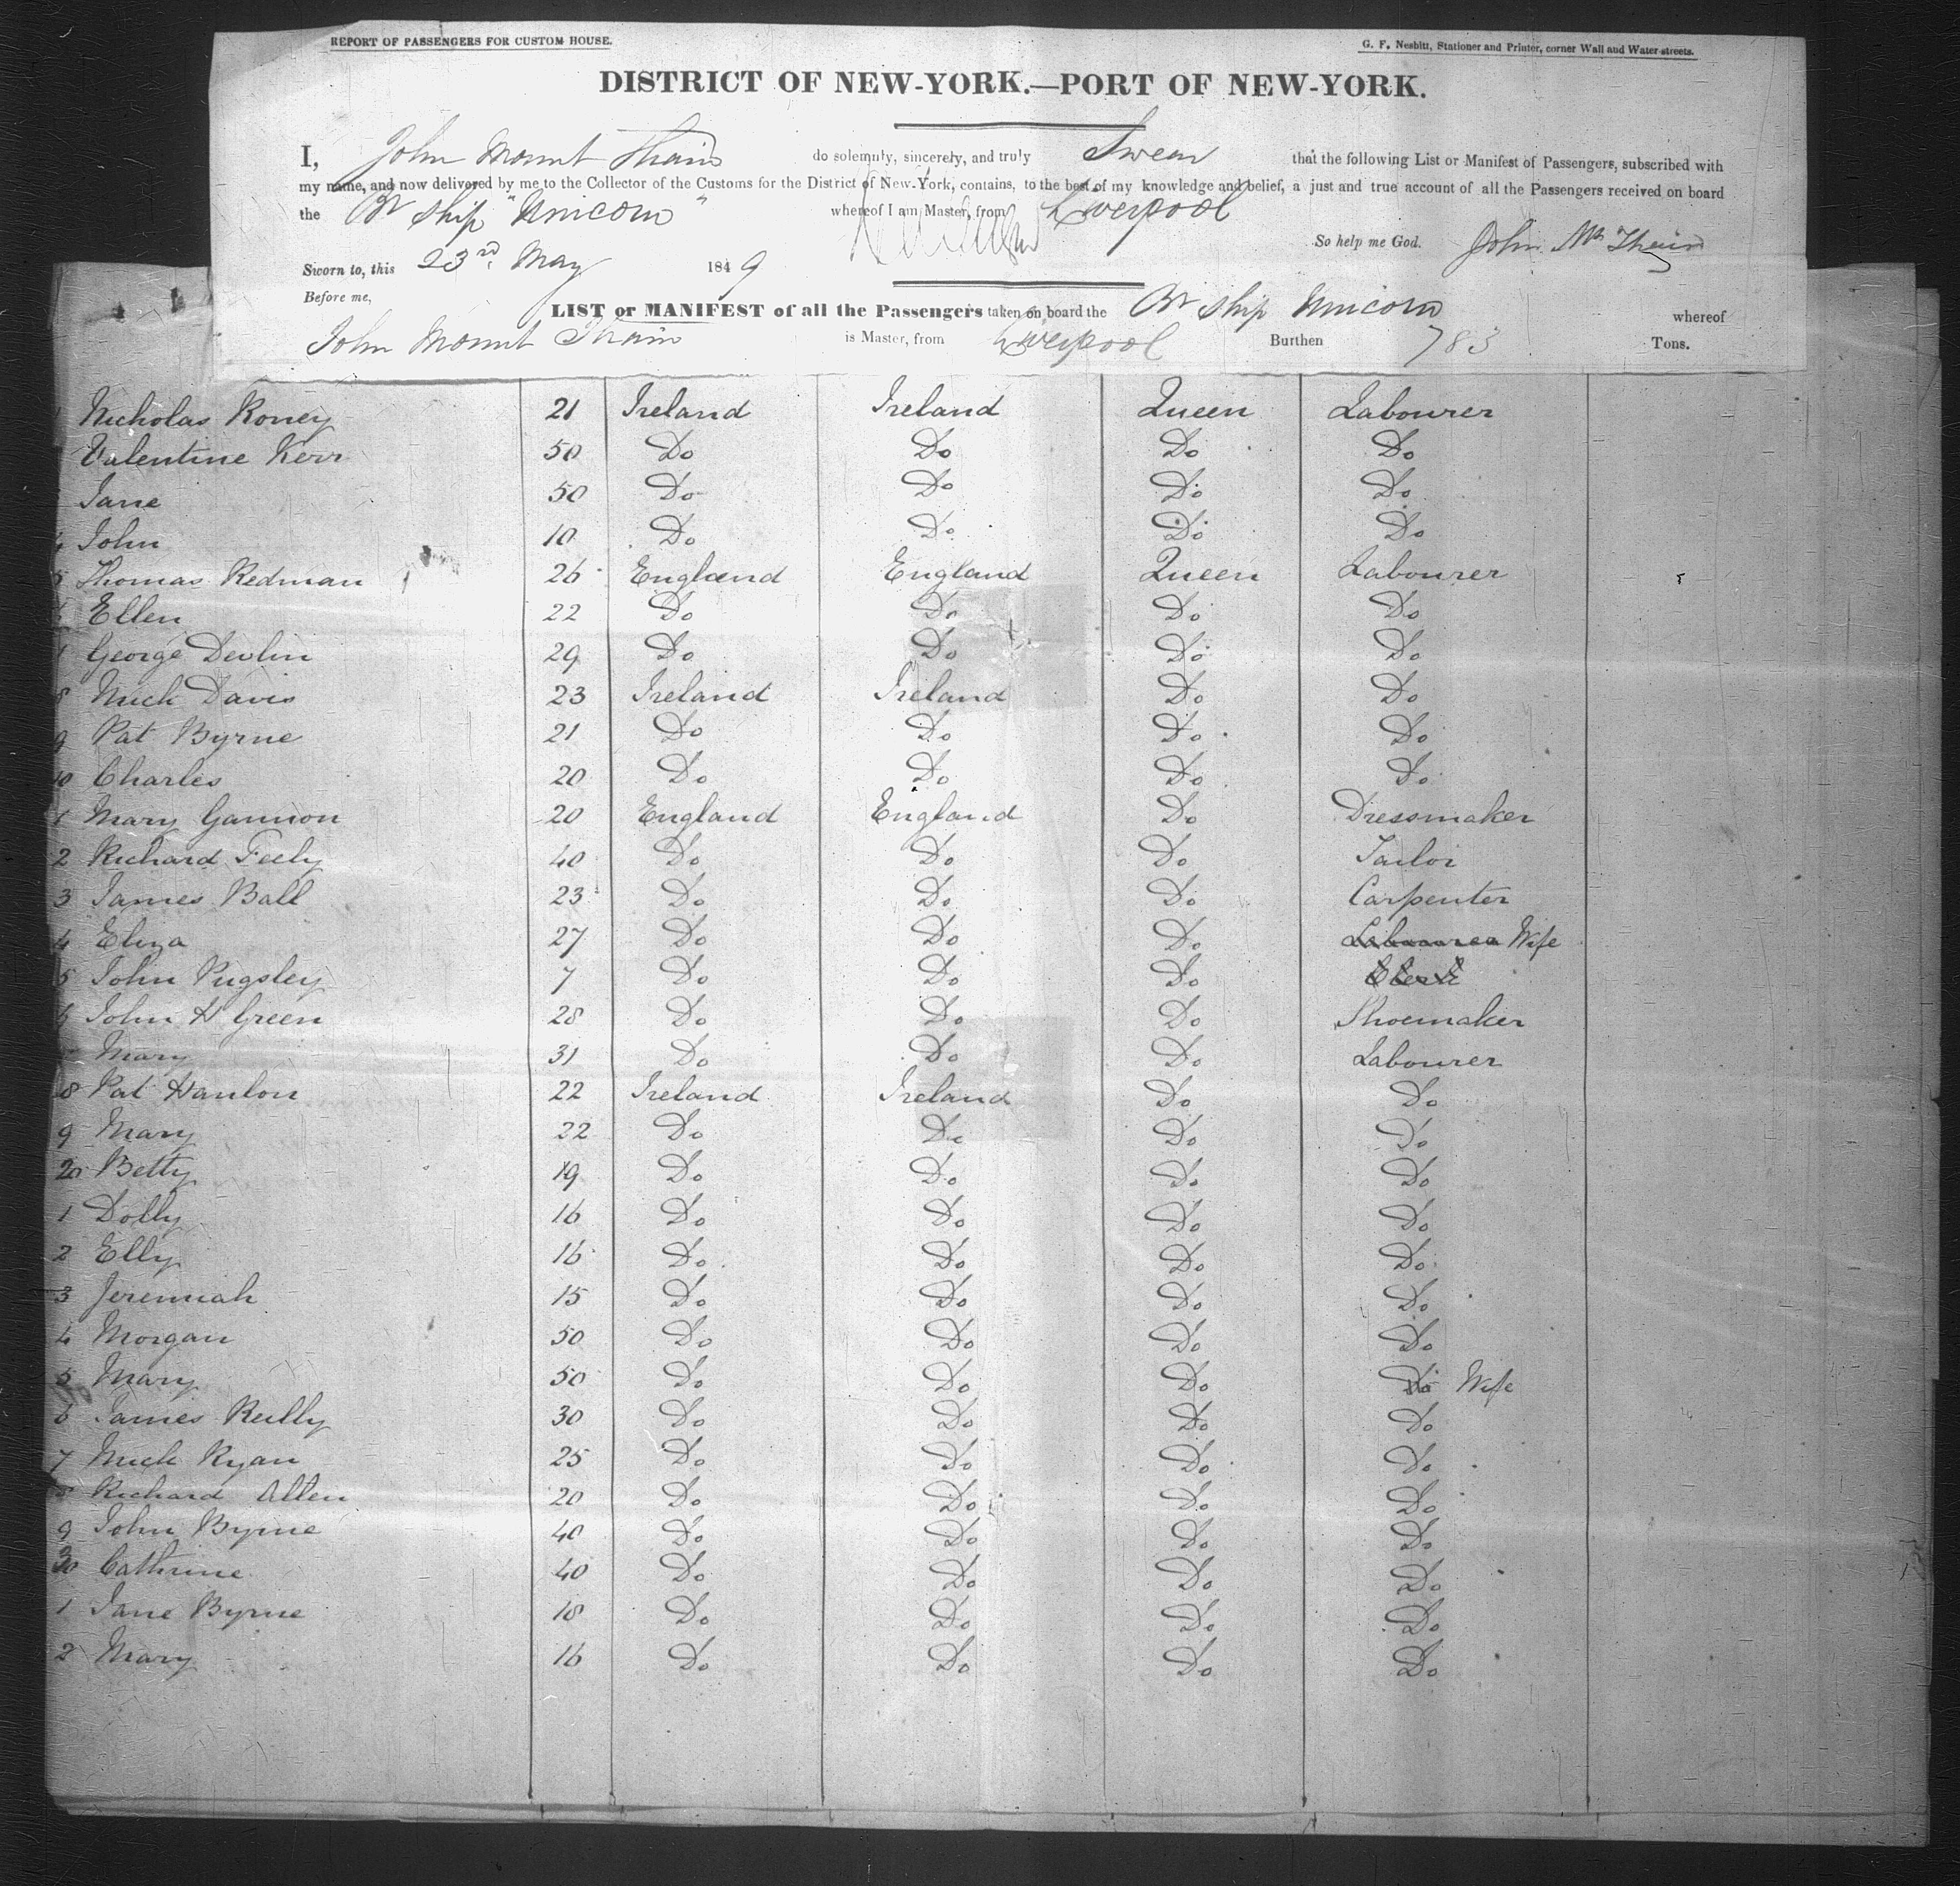 REPORT OF PASSENGERS FOR CUSTOM HOUSE. G. F. Nesbitt, Stationer and Printer, corner Wall and Water streets.
DISTRICT OF NEW-YORK.—PORT OF NEW-YORK.
I, John Mount Thain do solemnly, sincerely, and truly Swear that the following List or Manifest of Passengers, subscribed with
my name, and now delivered by me to the Collector of the Customs for the District of New-York, contains, to the best of my knowledge and belief, a just and true account of all the Passengers received on board
the Br ship "Unicorn" whereof I am Master, from Liverpool
So help me God. John Mt Thain
Sworn to, this 23rd May 1849
Before me,
LIST or MANIFEST of all the Passengers taken on board the Br Ship Unicorn whereof
John Mount Thain is Master, from Liverpool Burthen 783 Tons.
1 Nicholas Roney 21 Ireland Ireland Queen Labourer
Valentine Kerr 50 Do Do Do Do
Jane 50 Do Do Do Do
4 John 10 Do Do Do Do
5 Thomas Redman 26 England England Queen Labourer
6 Ellen 22 Do Do Do Do
George Devlin 29 Do Do Do Do
8 Mich Davis 23 Ireland Ireland Do Do
9 Pat Byrne 21 Do Do Do Do
10 Charles 20 Do Do Do Do
1 Mary Gannon 20 England England Do Dressmaker
2 Richard Feely 40 Do Do Do Tailor
3 James Ball 23 Do Do Do Carpenter
4 Eliza 27 Do Do Do Labourer Wife
5 John Pugsley 7 Do Do Do Clerk
6 John H Green 28 Do Do Do Shoemaker
Mary 31 Do Do Do Labourer
8 Pat Hanlon 22 Ireland Ireland Do Do
9 Mary 22 Do Do Do Do
20 Betty 19 Do Do Do Do
1 Dolly 16 Do Do Do Do
2 Elly 16 Do Do Do Do
3 Jeremiah 15 Do Do Do Do
4 Morgan 50 Do Do Do Do
5 Mary 50 Do Do Do Do Wife
6 James Reilly 30 Do Do Do Do
7 Mich Ryan 25 Do Do Do Do
8 Richard Allen 20 Do Do Do Do
9 John Byrne 40 Do Do Do Do
30 Cathrine 40 Do Do Do Do
1 Jane Byrne 18 Do Do Do Do
2 Mary 16 Do Do Do Do